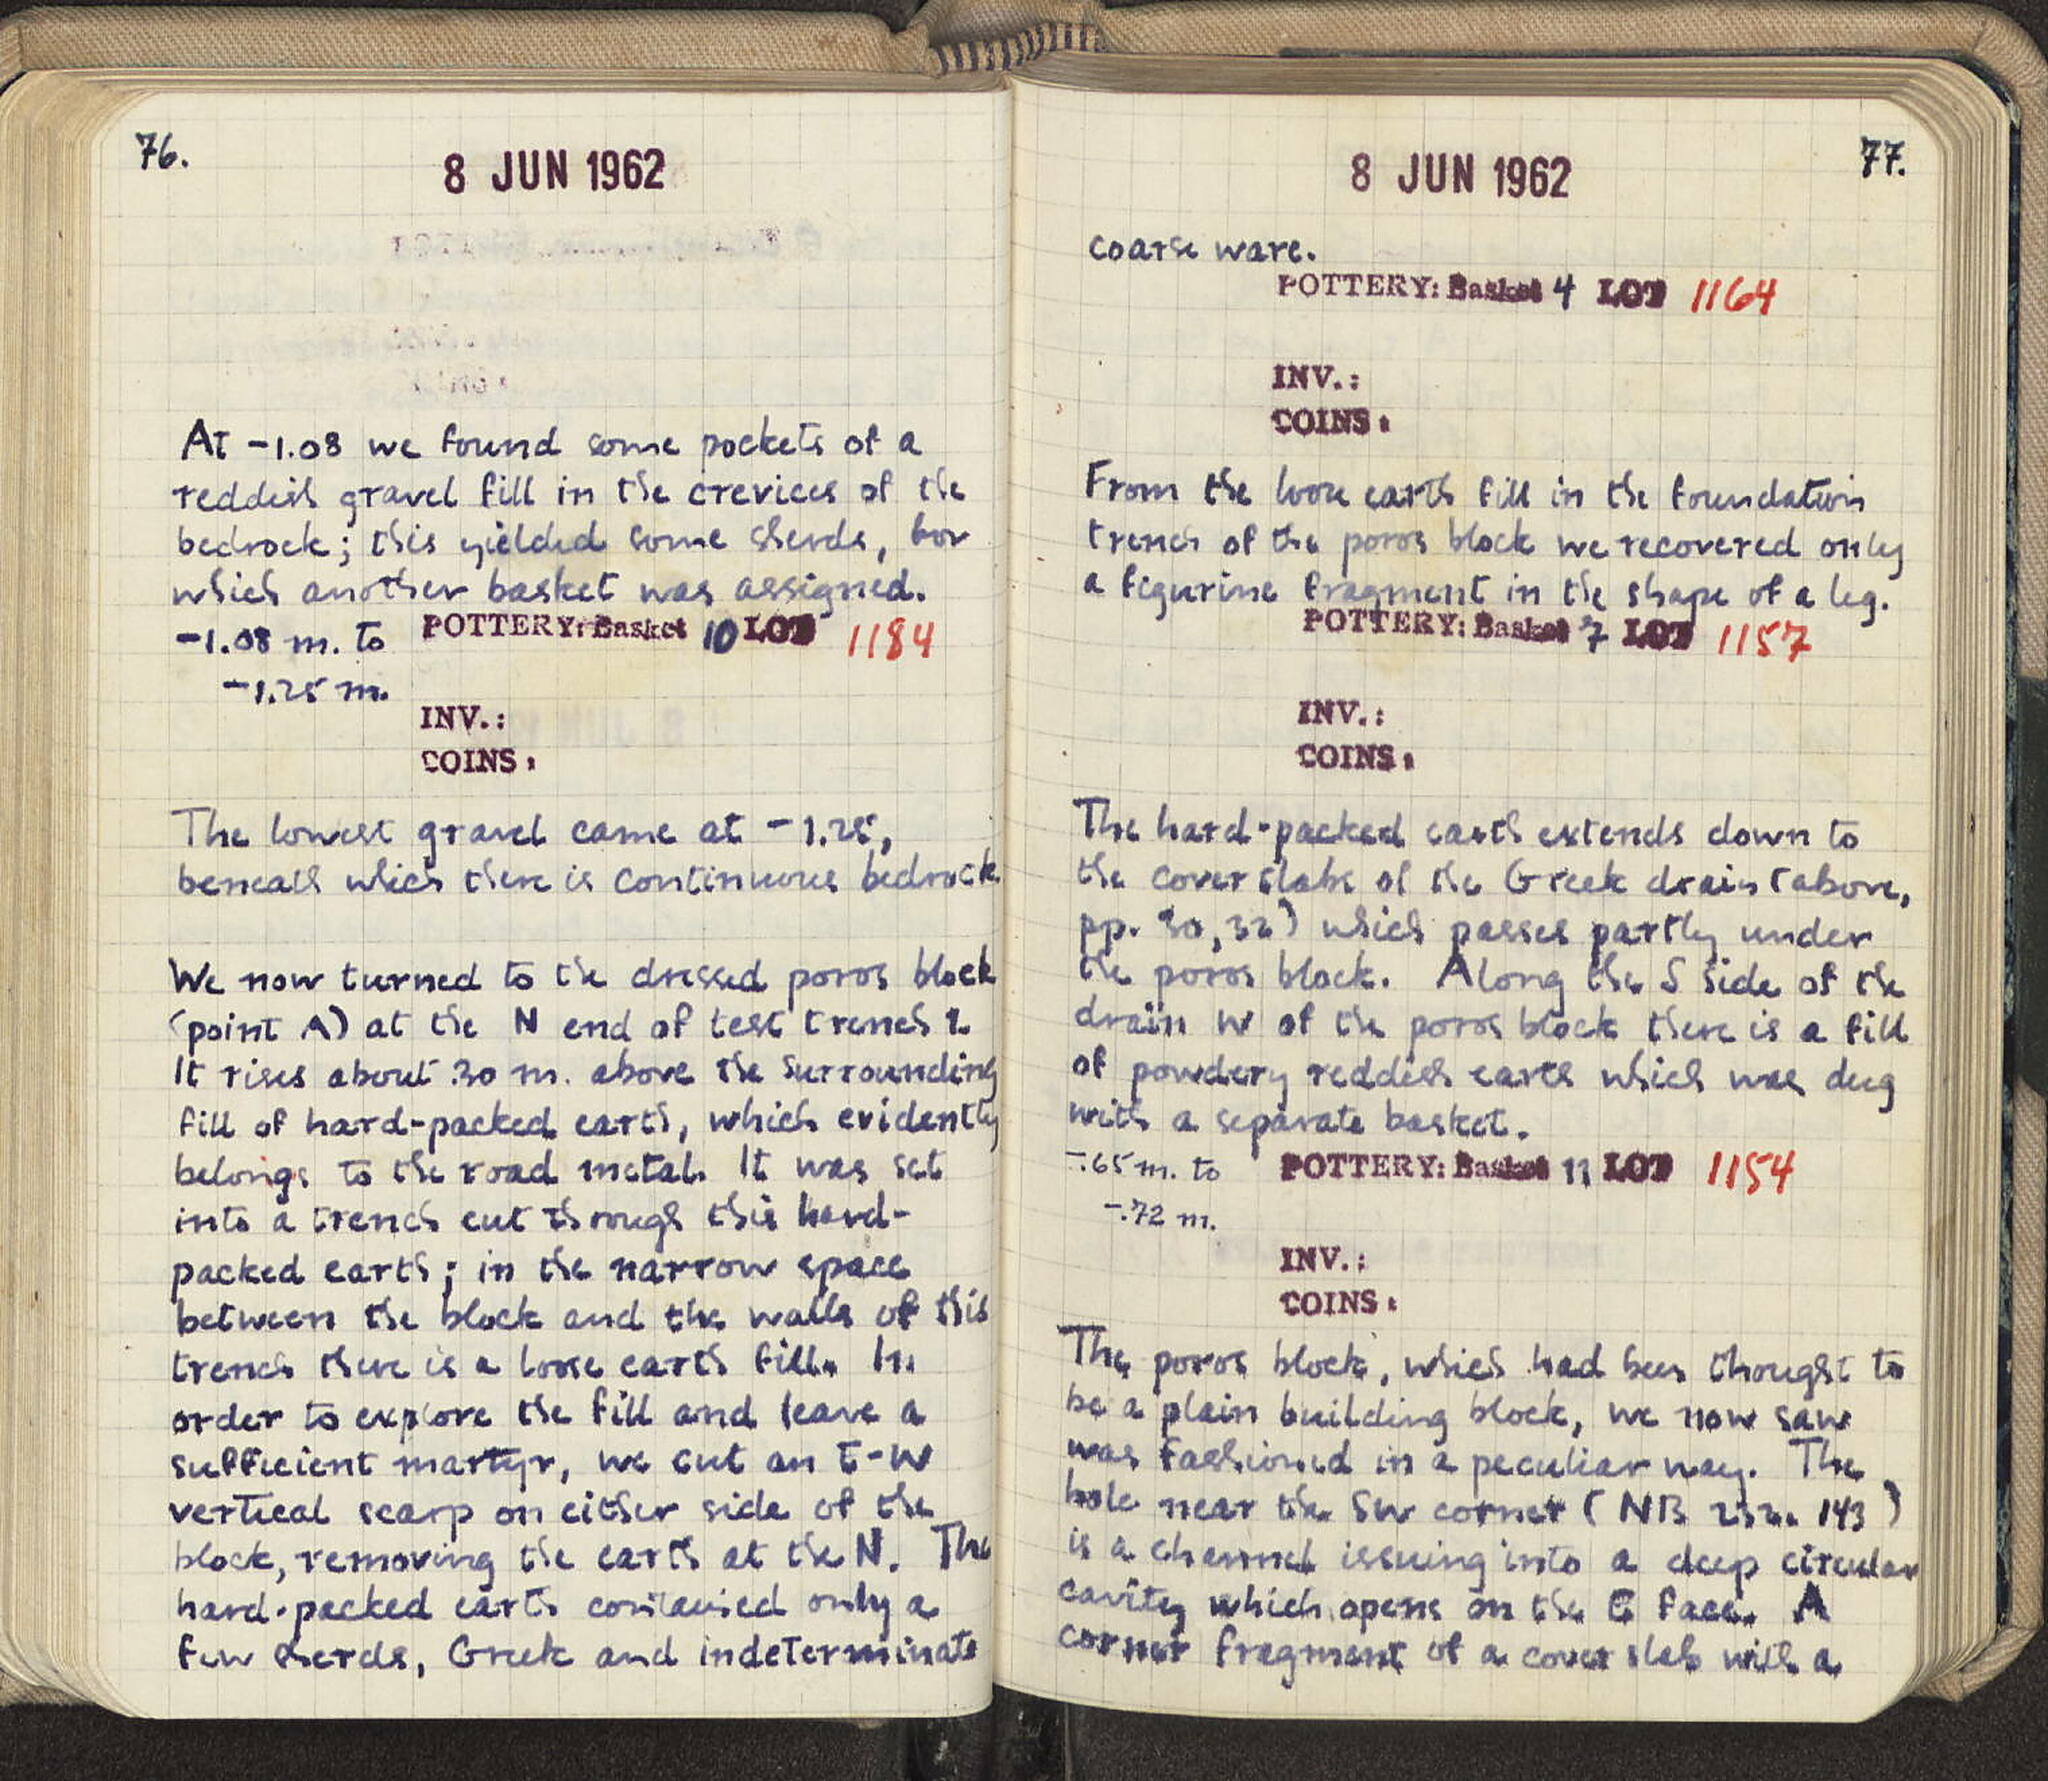 76.
8 JUN 1962
At -1.08 we found some pockets of a
reddish gravel fill in the crevices of the
bedrock; this yielded some sherds, for
which another basket was assigned.
-1.08 m. to POTTERY: Basket 10 LOT 1184
-1.25 m.
INV.:
COINS:
The lowest gravel came at -1.25,
beneath which there is continuous bedrock
We now turned to the dressed poros block
(point A) at the N end of test trench 1.
It rises about .30 m. above the surrounding
fill of hard-packed earth, which evidently
belongs to the road metal. It was set
into a trench cut through this hard-
packed earth; in the narrow space
between the block and the walls of this
trench there is a loose earth fill. In
order to explore the fill and leave a
sufficient martyr, we cut an E-W
vertical scarp on either side of the
block, removing the earth at the N. The
hard-packed earth contained only a
few sherds, Greek and indeterminate
77.
8 JUN 1962
coarse ware.
POTTERY: Basket 4 LOT 1164
INV.:
COINS:
From the loose earth fill in the foundation
trench of the poros block we recovered only
a figurine fragment in the shape of a leg.
POTTERY: Basket 7 LOT 1157
INV.:
COINS:
The hard-packed earth extends down to
the cover slabs of the Greek drain (above,
pp. 30, 32) which passes partly under
the poros block. Along the S side of the
drain W of the poros block there is a fill
of powdery reddish earth which was dug
with a separate basket.
-.65 m. to POTTERY: Basket 11 LOT 1154
-.72 m.
INV.:
COINS:
The poros block, which had been thought to
be a plain building block, we now saw
was fashioned in a peculiar way. The
hole near the SW corner (NB 232. 143)
is a channel issuing into a deep circular
cavity which opens on the E face. A
corner fragment of a cover slab with a